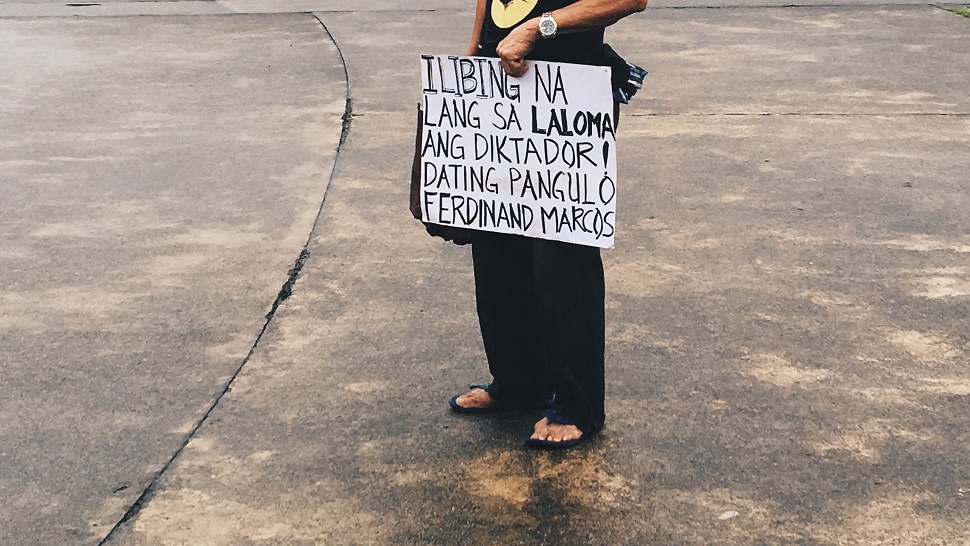 ILIBING NA
LANG SA LALOMA
ANG DIKTADOR!
DATING PANGULO
FERDINAND MARCOS